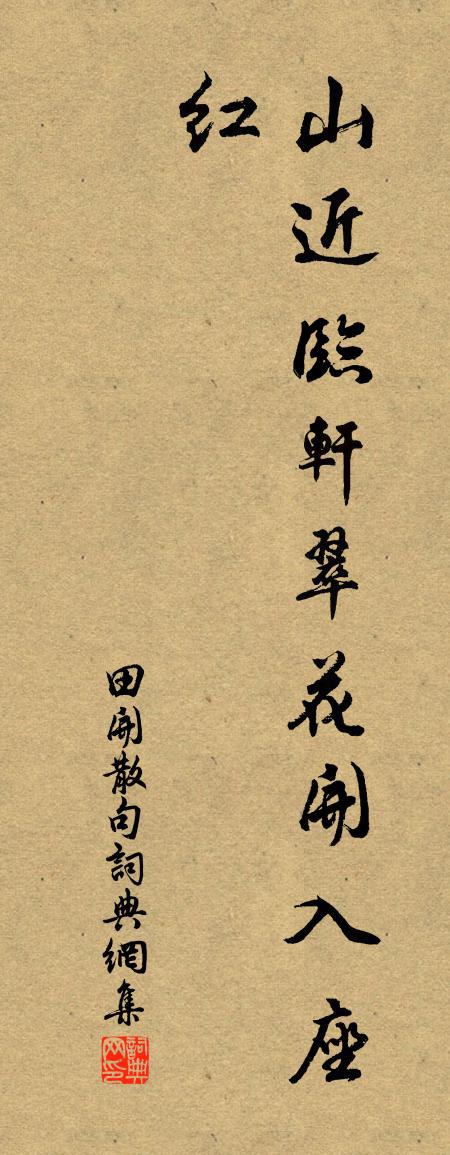 山近臨軒翠花開入座
紅
田開散句詞典網集
詞典
网印